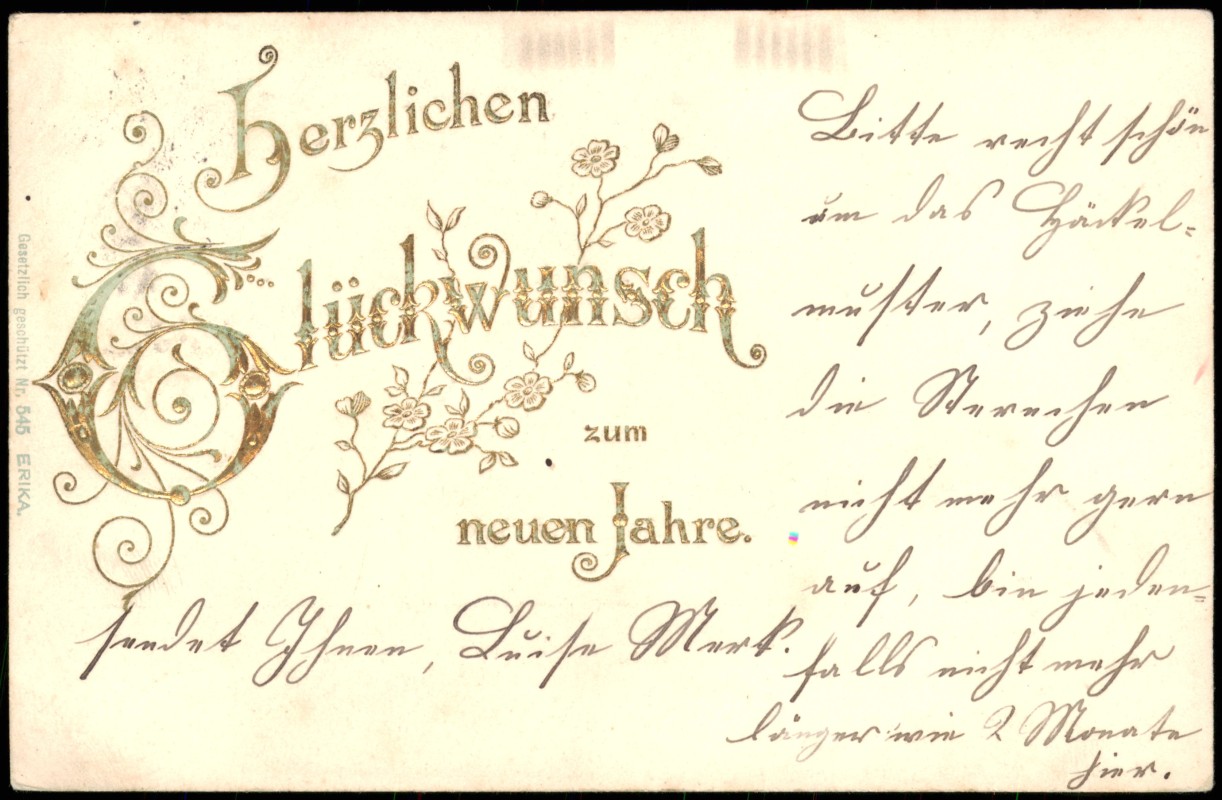 Herzlichen
Glückwunsch
zum
neuen Jahre.
sendet Ihnen, Luise Merk.
Bitte recht schön
um das Häckel-
muster, ziehe
die Sternchen
nicht mehr gern
auf, bin jeden-
falls nicht mehr
länger wie 2 Monate
hier.
Gesetzlich geschützt Nr. 545 ERIKA.